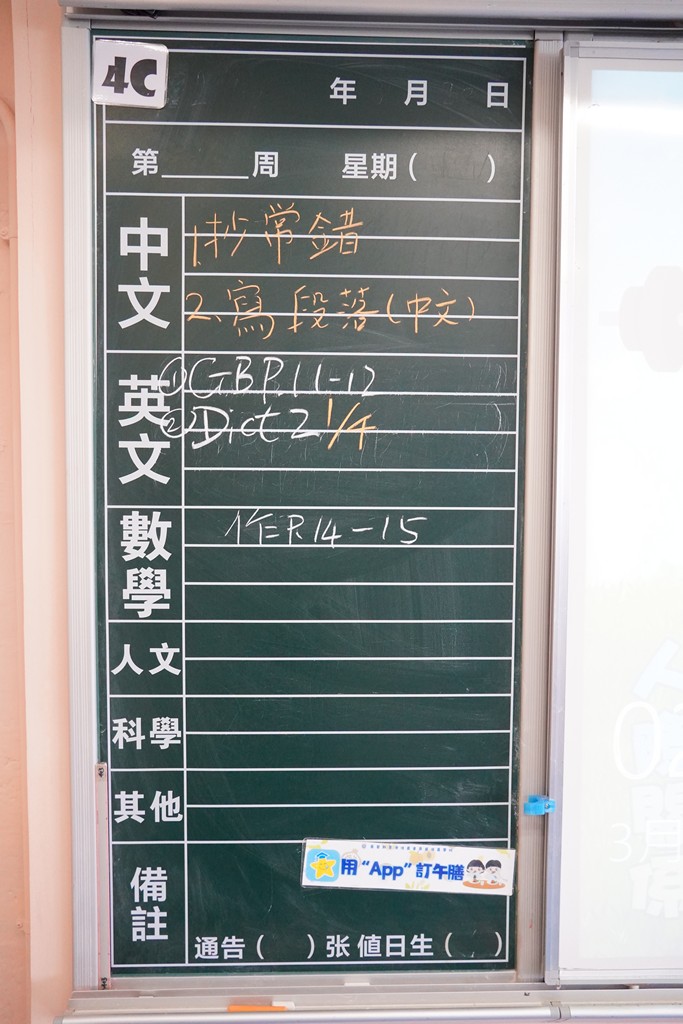 4C
年 月 日
第______周 星期( )
中文
1.抄常錯
2.寫段落(中文)
英文
①GB P.11-12
②Dict 2 1/4
數學
作P.14-15
人文
科學
其他
備註
用“App”訂午膳
通告( )张 值日生( )
3月